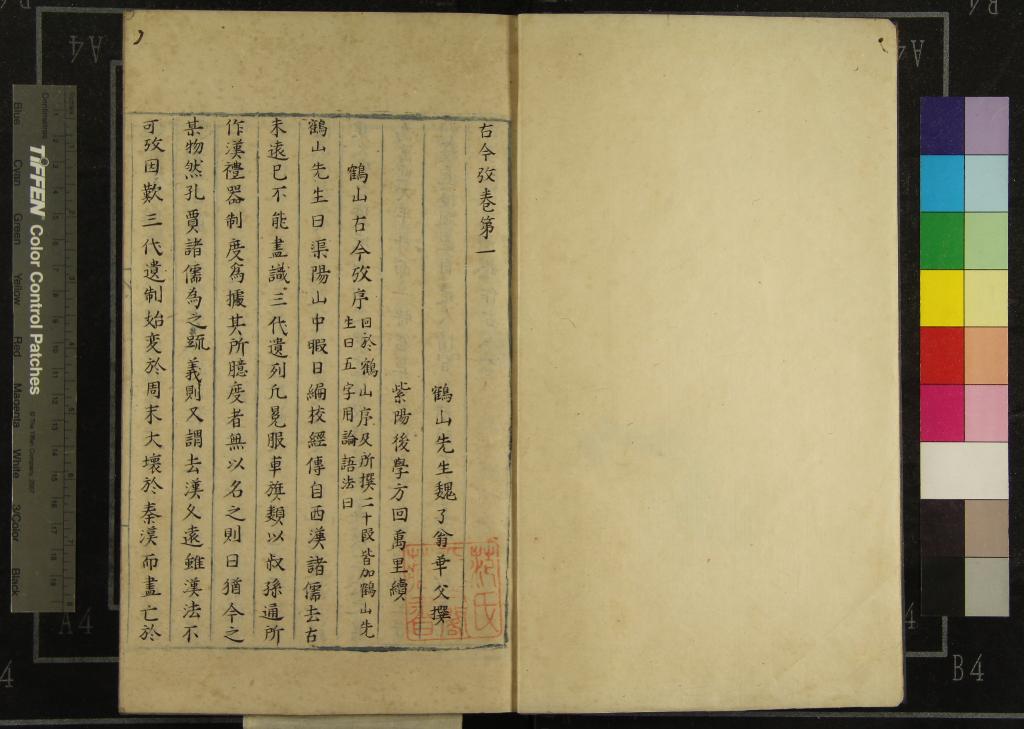 古今攷卷第一
鶴山先生魏了翁華父撰
紫陽後學方回萬里續
鶴山古今攷序 回於鶴山序及所撰二十段皆加鶴山先
生曰五字用論語法曰
鶴山先生曰渠陽山中暇日編挍經傳自西漢諸儒去古
未遠已不能盡識三代遺列凡冕服車旗類以叔孫通所
作漢禮器制度爲據其所臆度者無以名之則曰猶今之
某物然孔賈諸儒為之疏義則又謂去漢久遠雖漢法不
可攷因歎三代遺制始変於周末大壞於秦漢而盡亡於
TIFFEN Color Control Patches
© The Tiffen Company, 2007
Centimetres
Blue
Cyan
Green
Yellow
Red
Magenta
White
3/Color
Black
A4
A4
A4
B4